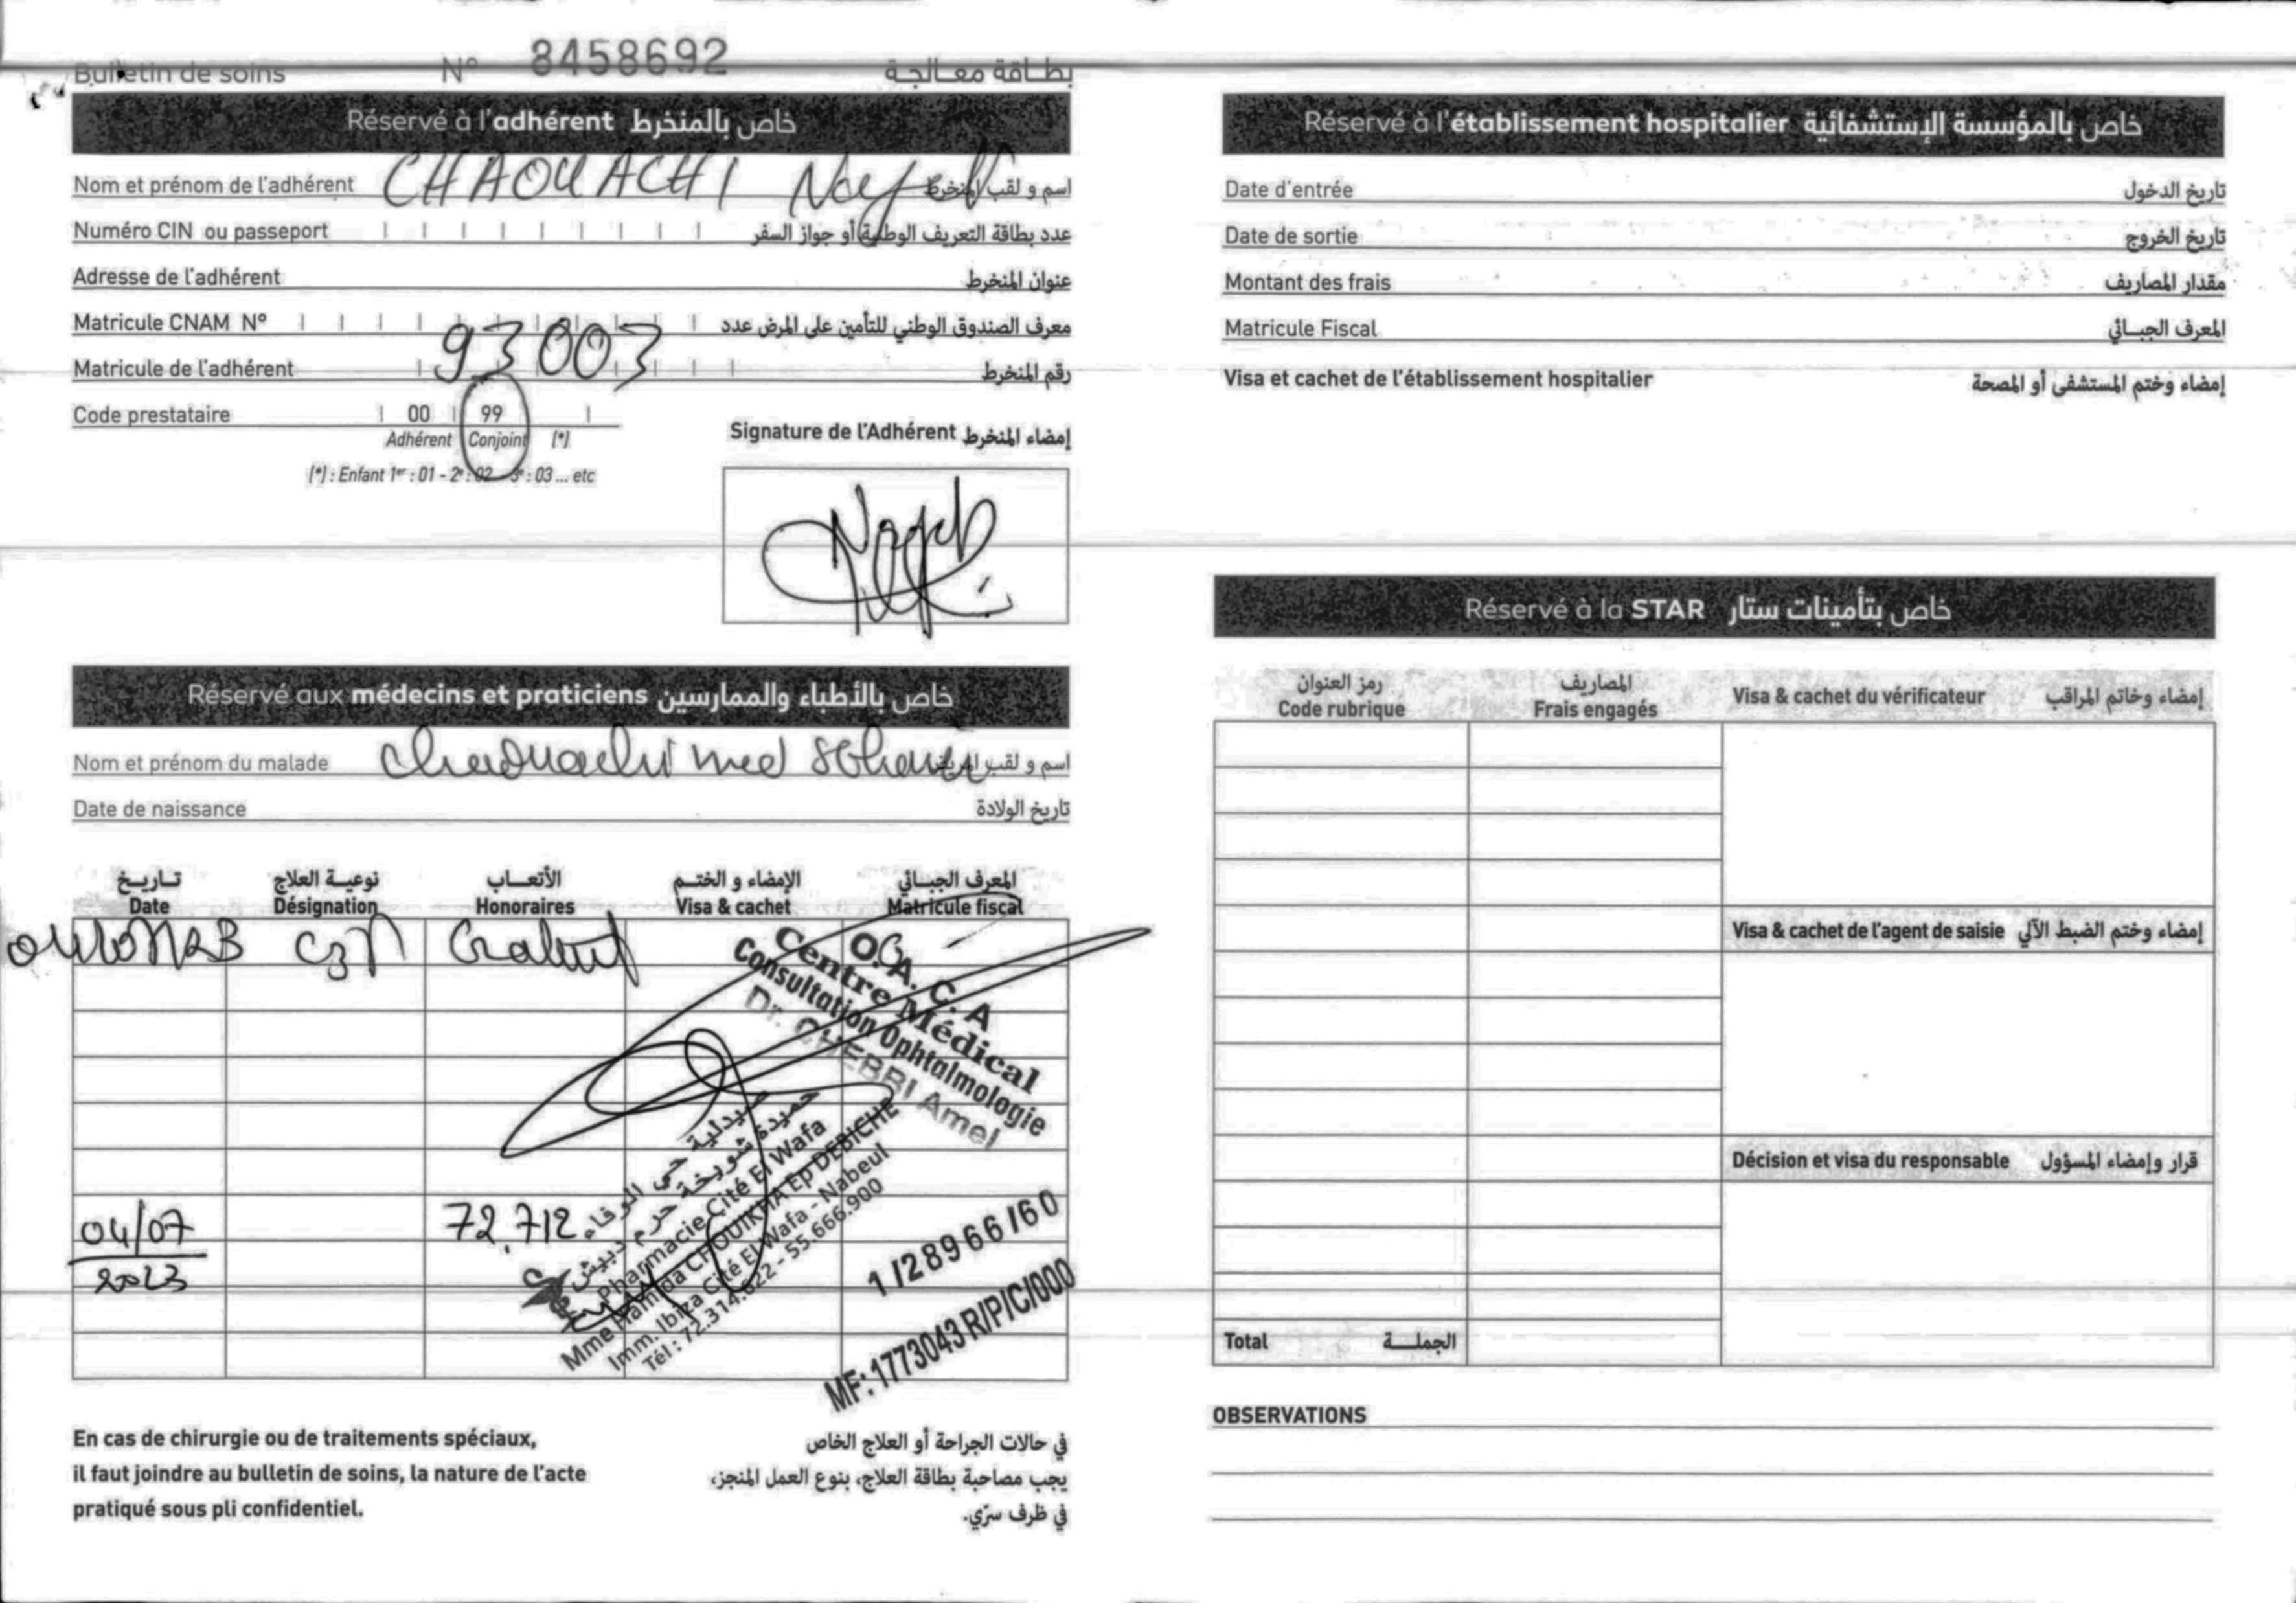 Bulletin de soins N° 8458692 بطاقة معالجة
Réservé à l'adhérent خاص بالمنخرط
Nom et prénom de l'adhérent CHAOUACHI اسم و لقب المنخرط
Numéro CIN ou passeport عدد بطاقة التعريف الوطنية أو جواز السفر
Adresse de l'adhérent عنوان المنخرط
Matricule CNAM N° معرف الصندوق الوطني للتأمين على المرض عدد
Matricule de l'adhérent 93003 رقم المنخرط
Code prestataire 00 99
Adhérent Conjoint (*)
(*) : Enfant 1er : 01 - 2e : 02 - 3e : 03 ... etc
Signature de l'Adhérent إمضاء المنخرط
Réservé aux médecins et praticiens خاص بالأطباء والممارسين
Nom et prénom du malade Chaouachi med اسم و لقب المريض
Date de naissance تاريخ الولادة
تاريخ نوعية العلاج الأتعاب الإمضاء و الختم المعرف الجبائي
Date Désignation Honoraires Visa & cachet Matricule fiscal
O.A.C.A
Centre Médical
Consultation Ophtalmologie
Dr. CHEBBI Amel
04/07 72,712
2023
صيدلية حي الوفاء
حميدة شويخة حرم دبيش
Pharmacie Cité El Wafa
Mme Hamida CHOUIKHA Ep DEBICHE
Imm. Ibiza Cité El Wafa - Nabeul
Tél : 72.314.622 - 55.666.900
1/28966/60
MF: 1773043 R/P/C/000
En cas de chirurgie ou de traitements spéciaux,
il faut joindre au bulletin de soins, la nature de l'acte
pratiqué sous pli confidentiel.
في حالات الجراحة أو العلاج الخاص
يجب مصاحبة بطاقة العلاج، بنوع العمل المنجز،
في ظرف سرّي.
Réservé à l'établissement hospitalier خاص بالمؤسسة الإستشفائية
Date d'entrée تاريخ الدخول
Date de sortie تاريخ الخروج
Montant des frais مقدار المصاريف
Matricule Fiscal المعرف الجبائي
Visa et cachet de l'établissement hospitalier إمضاء وختم المستشفى أو المصحة
Réservé à la STAR خاص بتأمينات ستار
رمز العنوان المصاريف
Code rubrique Frais engagés Visa & cachet du vérificateur إمضاء وخاتم المراقب
Visa & cachet de l'agent de saisie إمضاء وختم الضبط الآلي
Décision et visa du responsable قرار وإمضاء المسؤول
Total الجملة
OBSERVATIONS